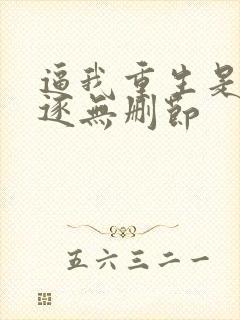 逼我重生是
逐無删節
五六三二一